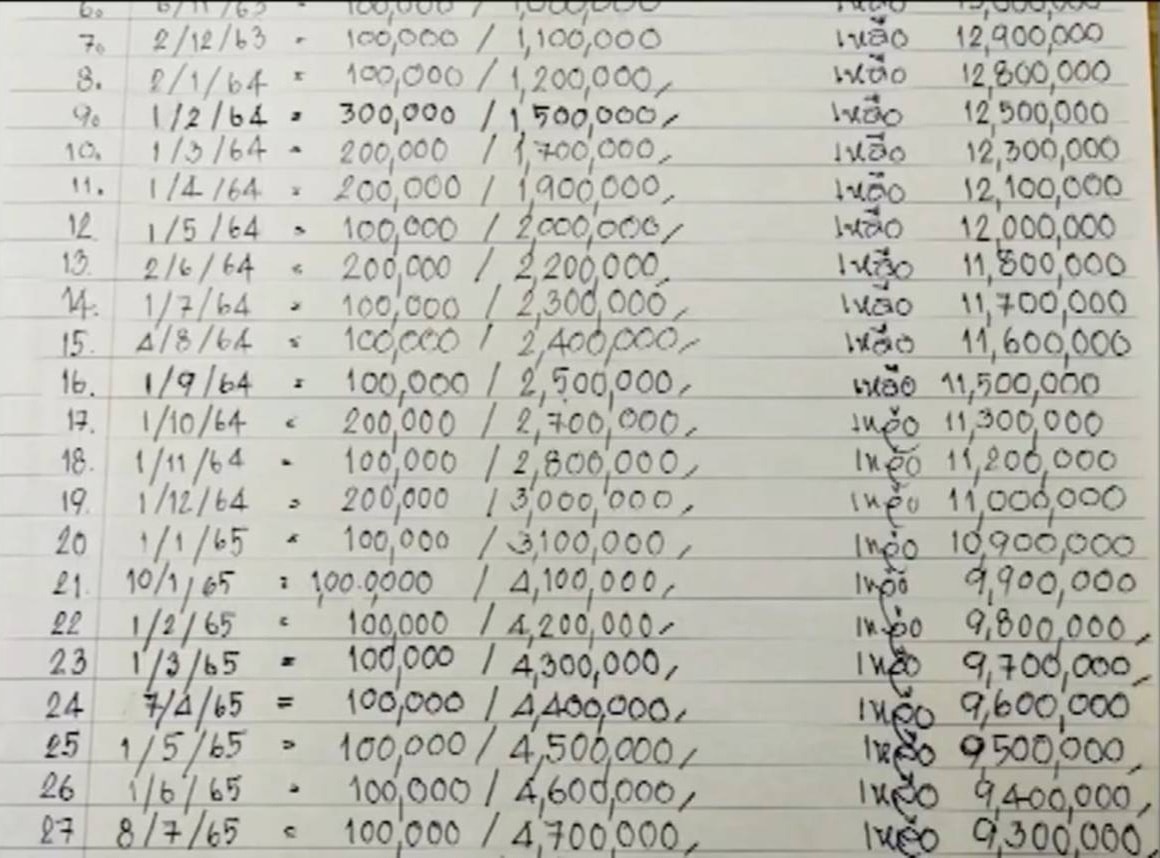 6. 6/11/63 = 100,000 / 1,000,000 เหลือ 13,000,000
7. 2/12/63 = 100,000 / 1,100,000 เหลือ 12,900,000
8. 2/1/64 = 100,000 / 1,200,000, เหลือ 12,800,000
9. 1/2/64 = 300,000 / 1,500,000, เหลือ 12,500,000
10. 1/3/64 = 200,000 / 1,700,000, เหลือ 12,300,000
11. 1/4/64 = 200,000 / 1,900,000, เหลือ 12,100,000
12 1/5/64 = 100,000 / 2,000,000, เหลือ 12,000,000
13. 2/6/64 = 200,000 / 2,200,000, เหลือ 11,800,000
14. 1/7/64 = 100,000 / 2,300,000, เหลือ 11,700,000
15. 4/8/64 = 100,000 / 2,400,000, เหลือ 11,600,000
16. 1/9/64 = 100,000 / 2,500,000, เหลือ 11,500,000
17. 1/10/64 = 200,000 / 2,700,000, เหลือ 11,300,000
18. 1/11/64 = 100,000 / 2,800,000, เหลือ 11,200,000
19. 1/12/64 = 200,000 / 3,000,000, เหลือ 11,000,000
20 1/1/65 = 100,000 / 3,100,000, เหลือ 10,900,000
21. 10/1/65 = 1,00.0,000 / 4,100,000, เหลือ 9,900,000
22 1/2/65 = 100,000 / 4,200,000, เหลือ 9,800,000,
23 1/3/65 = 100,000 / 4,300,000, เหลือ 9,700,000,
24 7/4/65 = 100,000 / 4,400,000, เหลือ 9,600,000
25 1/5/65 = 100,000 / 4,500,000, เหลือ 9,500,000,
26 1/6/65 = 100,000 / 4,600,000, เหลือ 9,400,000,
27 8/7/65 = 100,000 / 4,700,000, เหลือ 9,300,000,